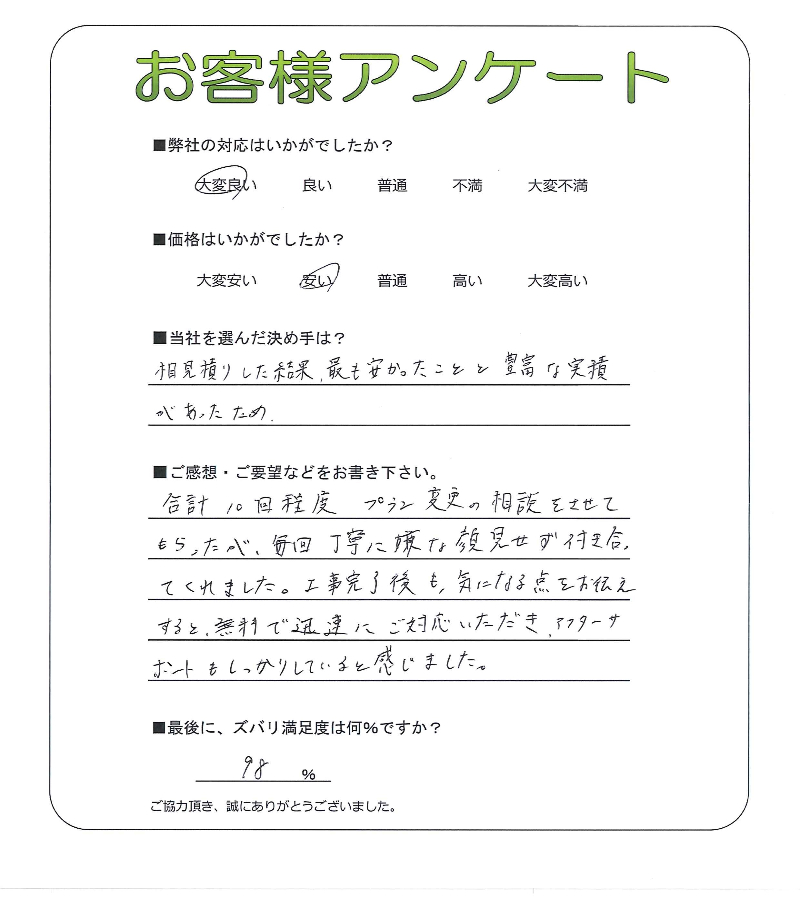 お客様アンケート
■弊社の対応はいかがでしたか？
大変良い 良い 普通 不満 大変不満
■価格はいかがでしたか？
大変安い 安い 普通 高い 大変高い
■当社を選んだ決め手は？
相見積りした結果、最も安かったことと豊富な実積
があったため。
■ご感想・ご要望などをお書き下さい。
合計10回程度 プラン変更の相談をさせて
もらったが、毎回丁寧に嫌な顔見せず付き合っ
てくれました。工事完了後も、気になる点をお伝え
すると、無料で迅速にご対応いただき、アフターサ
ポートもしっかりしていると感じました。
■最後に、ズバリ満足度は何%ですか？
98 %
ご協力頂き、誠にありがとうございました。